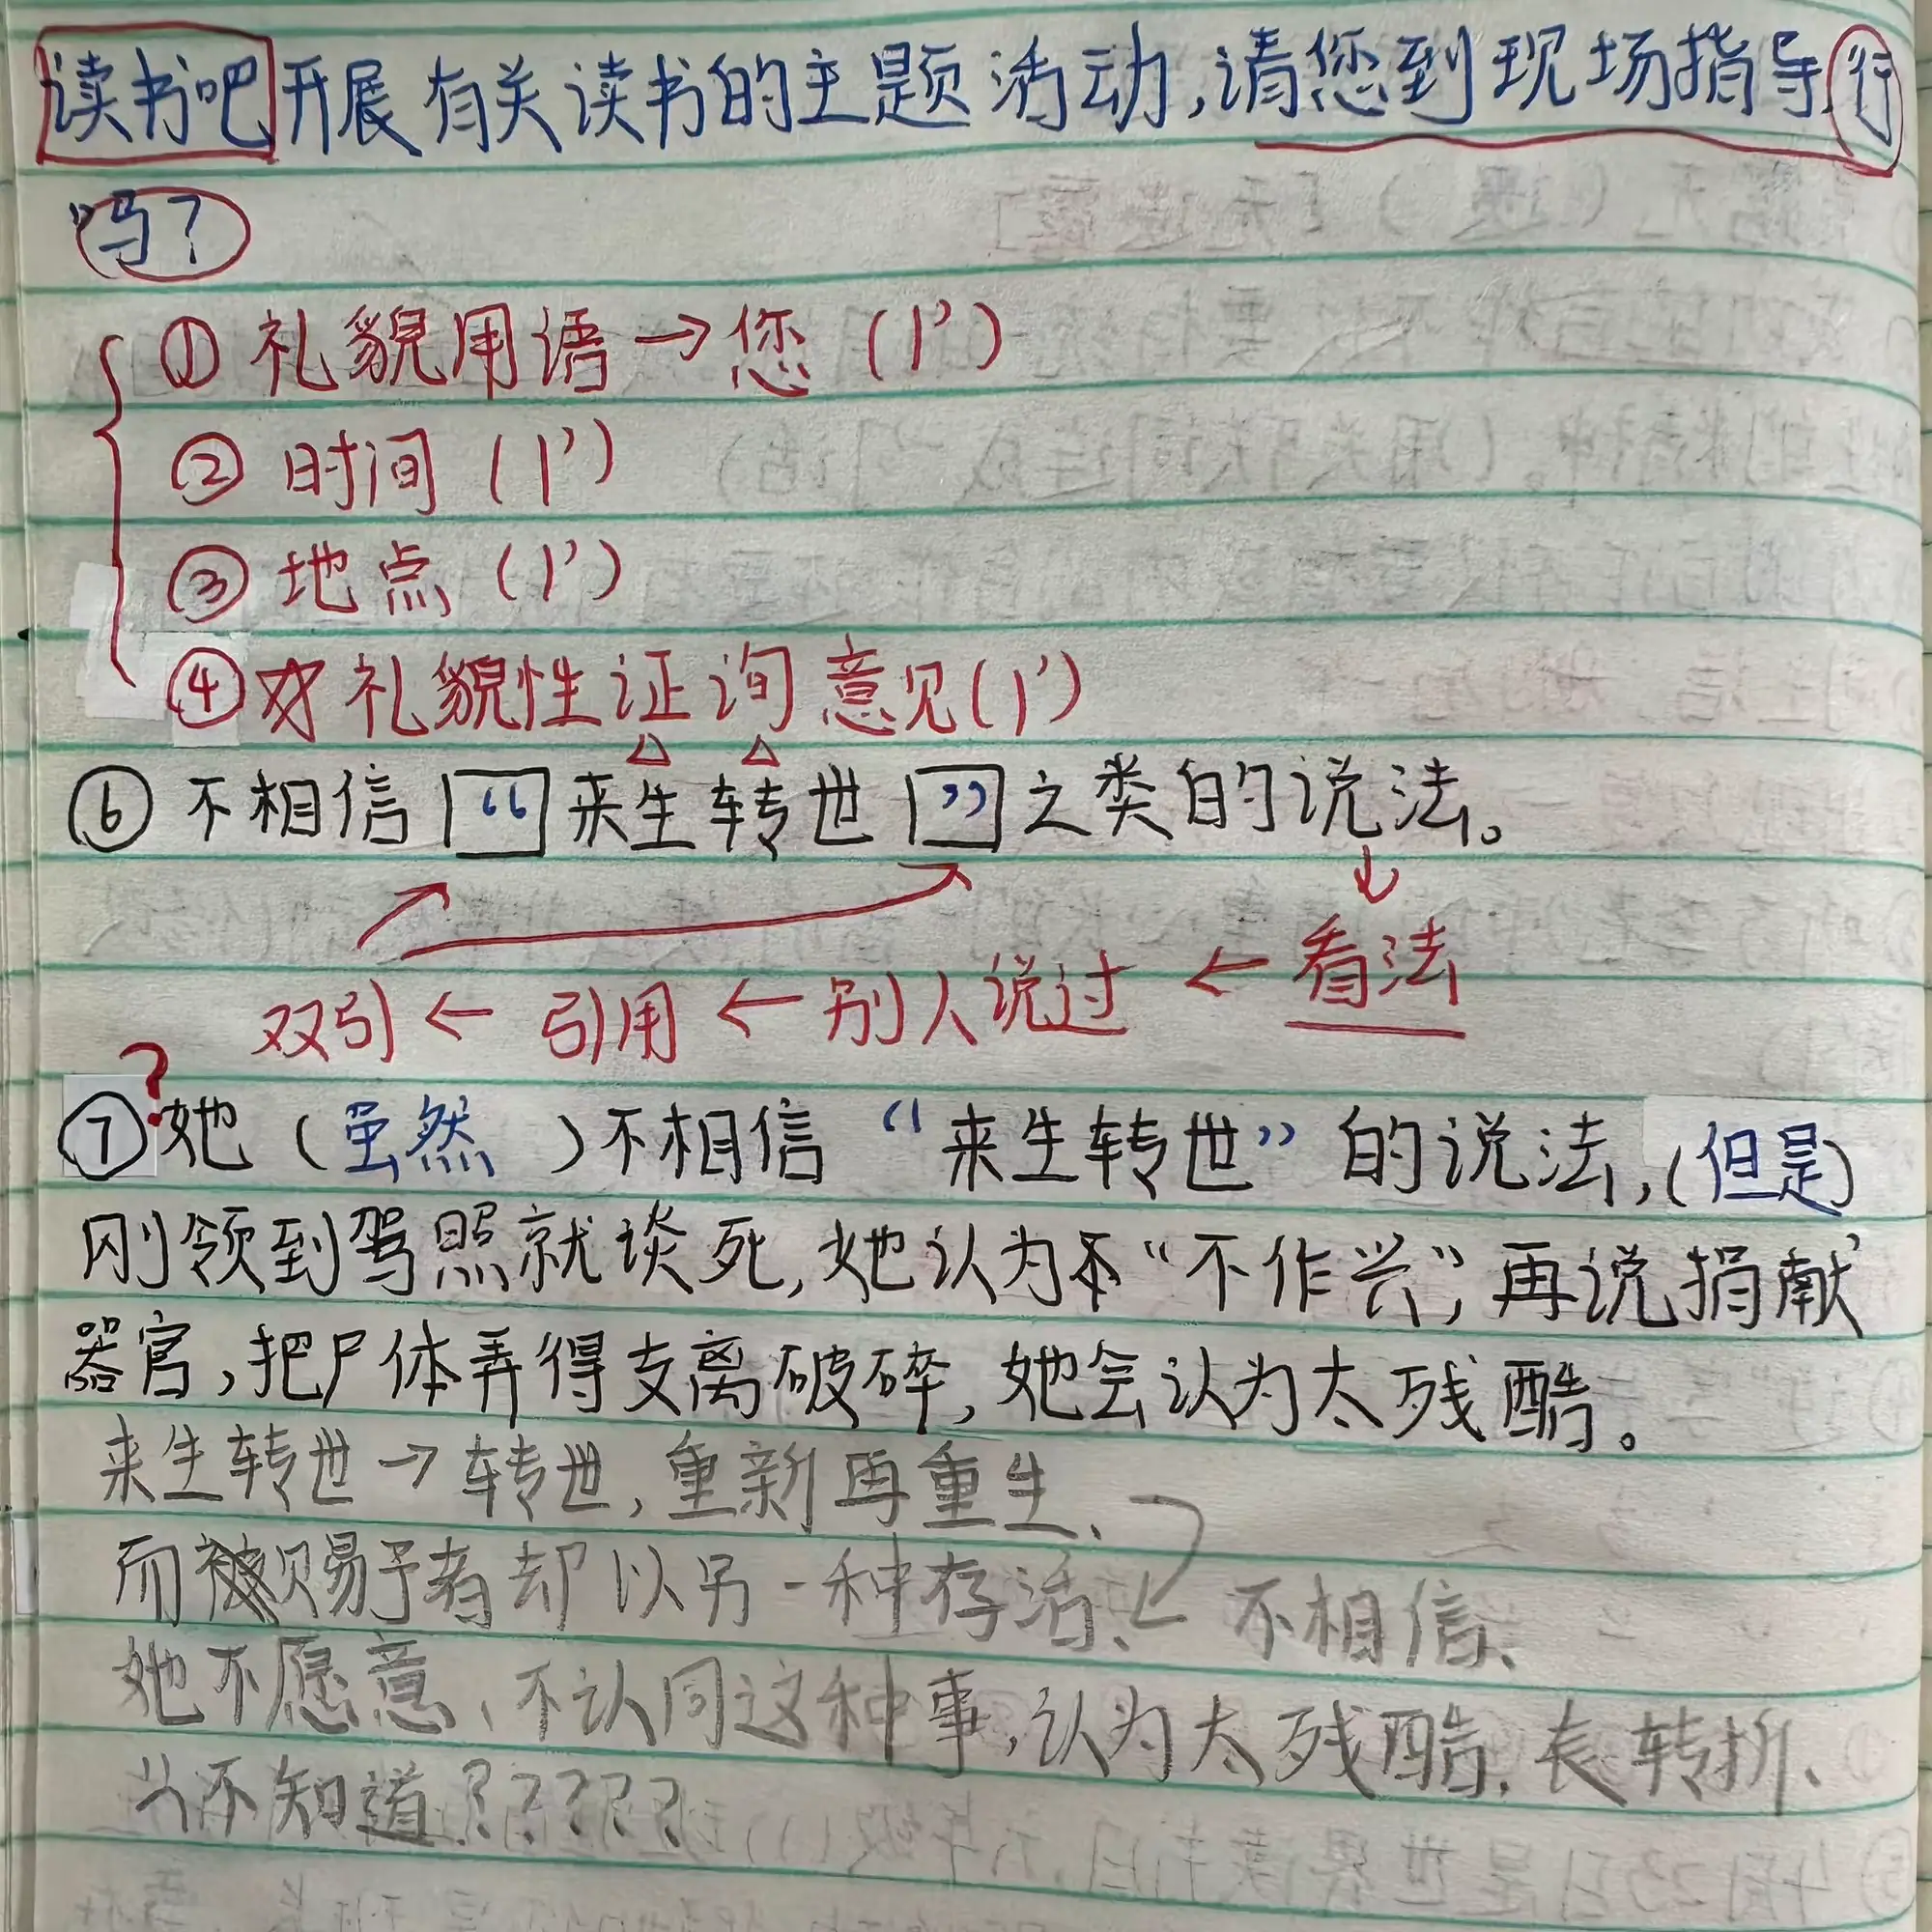 读书吧开展有关读书的主题活动,请您到现场指导,行
吗?
①礼貌用语→您(1')
②时间(1')
③地点(1')
④礼貌性证询意见(1')
⑥不相信“来生转世”之类的说法。
双引←引用←别人说过←看法
?
⑦她(虽然)不相信“来生转世”的说法,(但是)
刚领到驾照就谈死,她认为“不作兴”,再说捐献
器官,把尸体弄得支离破碎,她会认为太残酷。
来生转世→转世,重新再重生、
而赐予者却以另一种存活、不相信、
她不愿意、不认同这种事,认为太残酷,表转折、
不知道?????